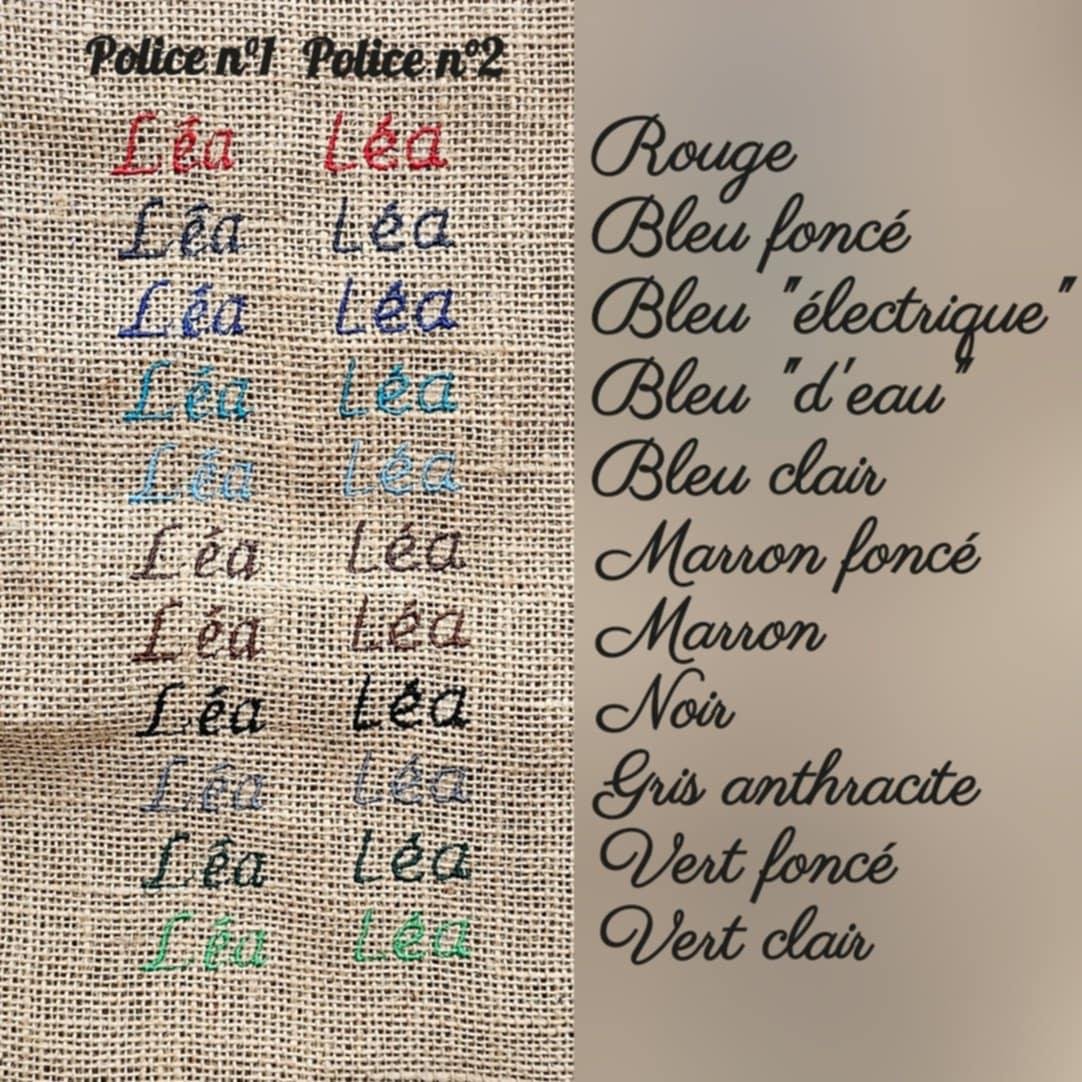 Police n°1 Police n°2
Léa Léa Rouge
Léa Léa Bleu foncé
Léa Léa Bleu "électrique"
Léa Léa Bleu "d'eau"
Léa Léa Bleu clair
Léa Léa Marron foncé
Léa Léa Marron
Léa Léa Noir
Léa Léa Gris anthracite
Léa Léa Vert foncé
Léa Léa Vert clair